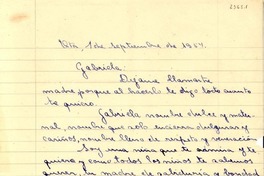 23621
1 de Septiembre de 1954.
Gabriela:
Déjame llamarte
madre porque al hacerlo te digo todo cuanto
te quiero.
Gabriela nombre dulce y mater-
nal, nombre que solo encierra dulzuras y
cariños, nombre lleno de respeto y veneración
Soy una niña que te admira y te
quiere y como todos los niños te sabemos
querer, madre de sabiduría y bondad